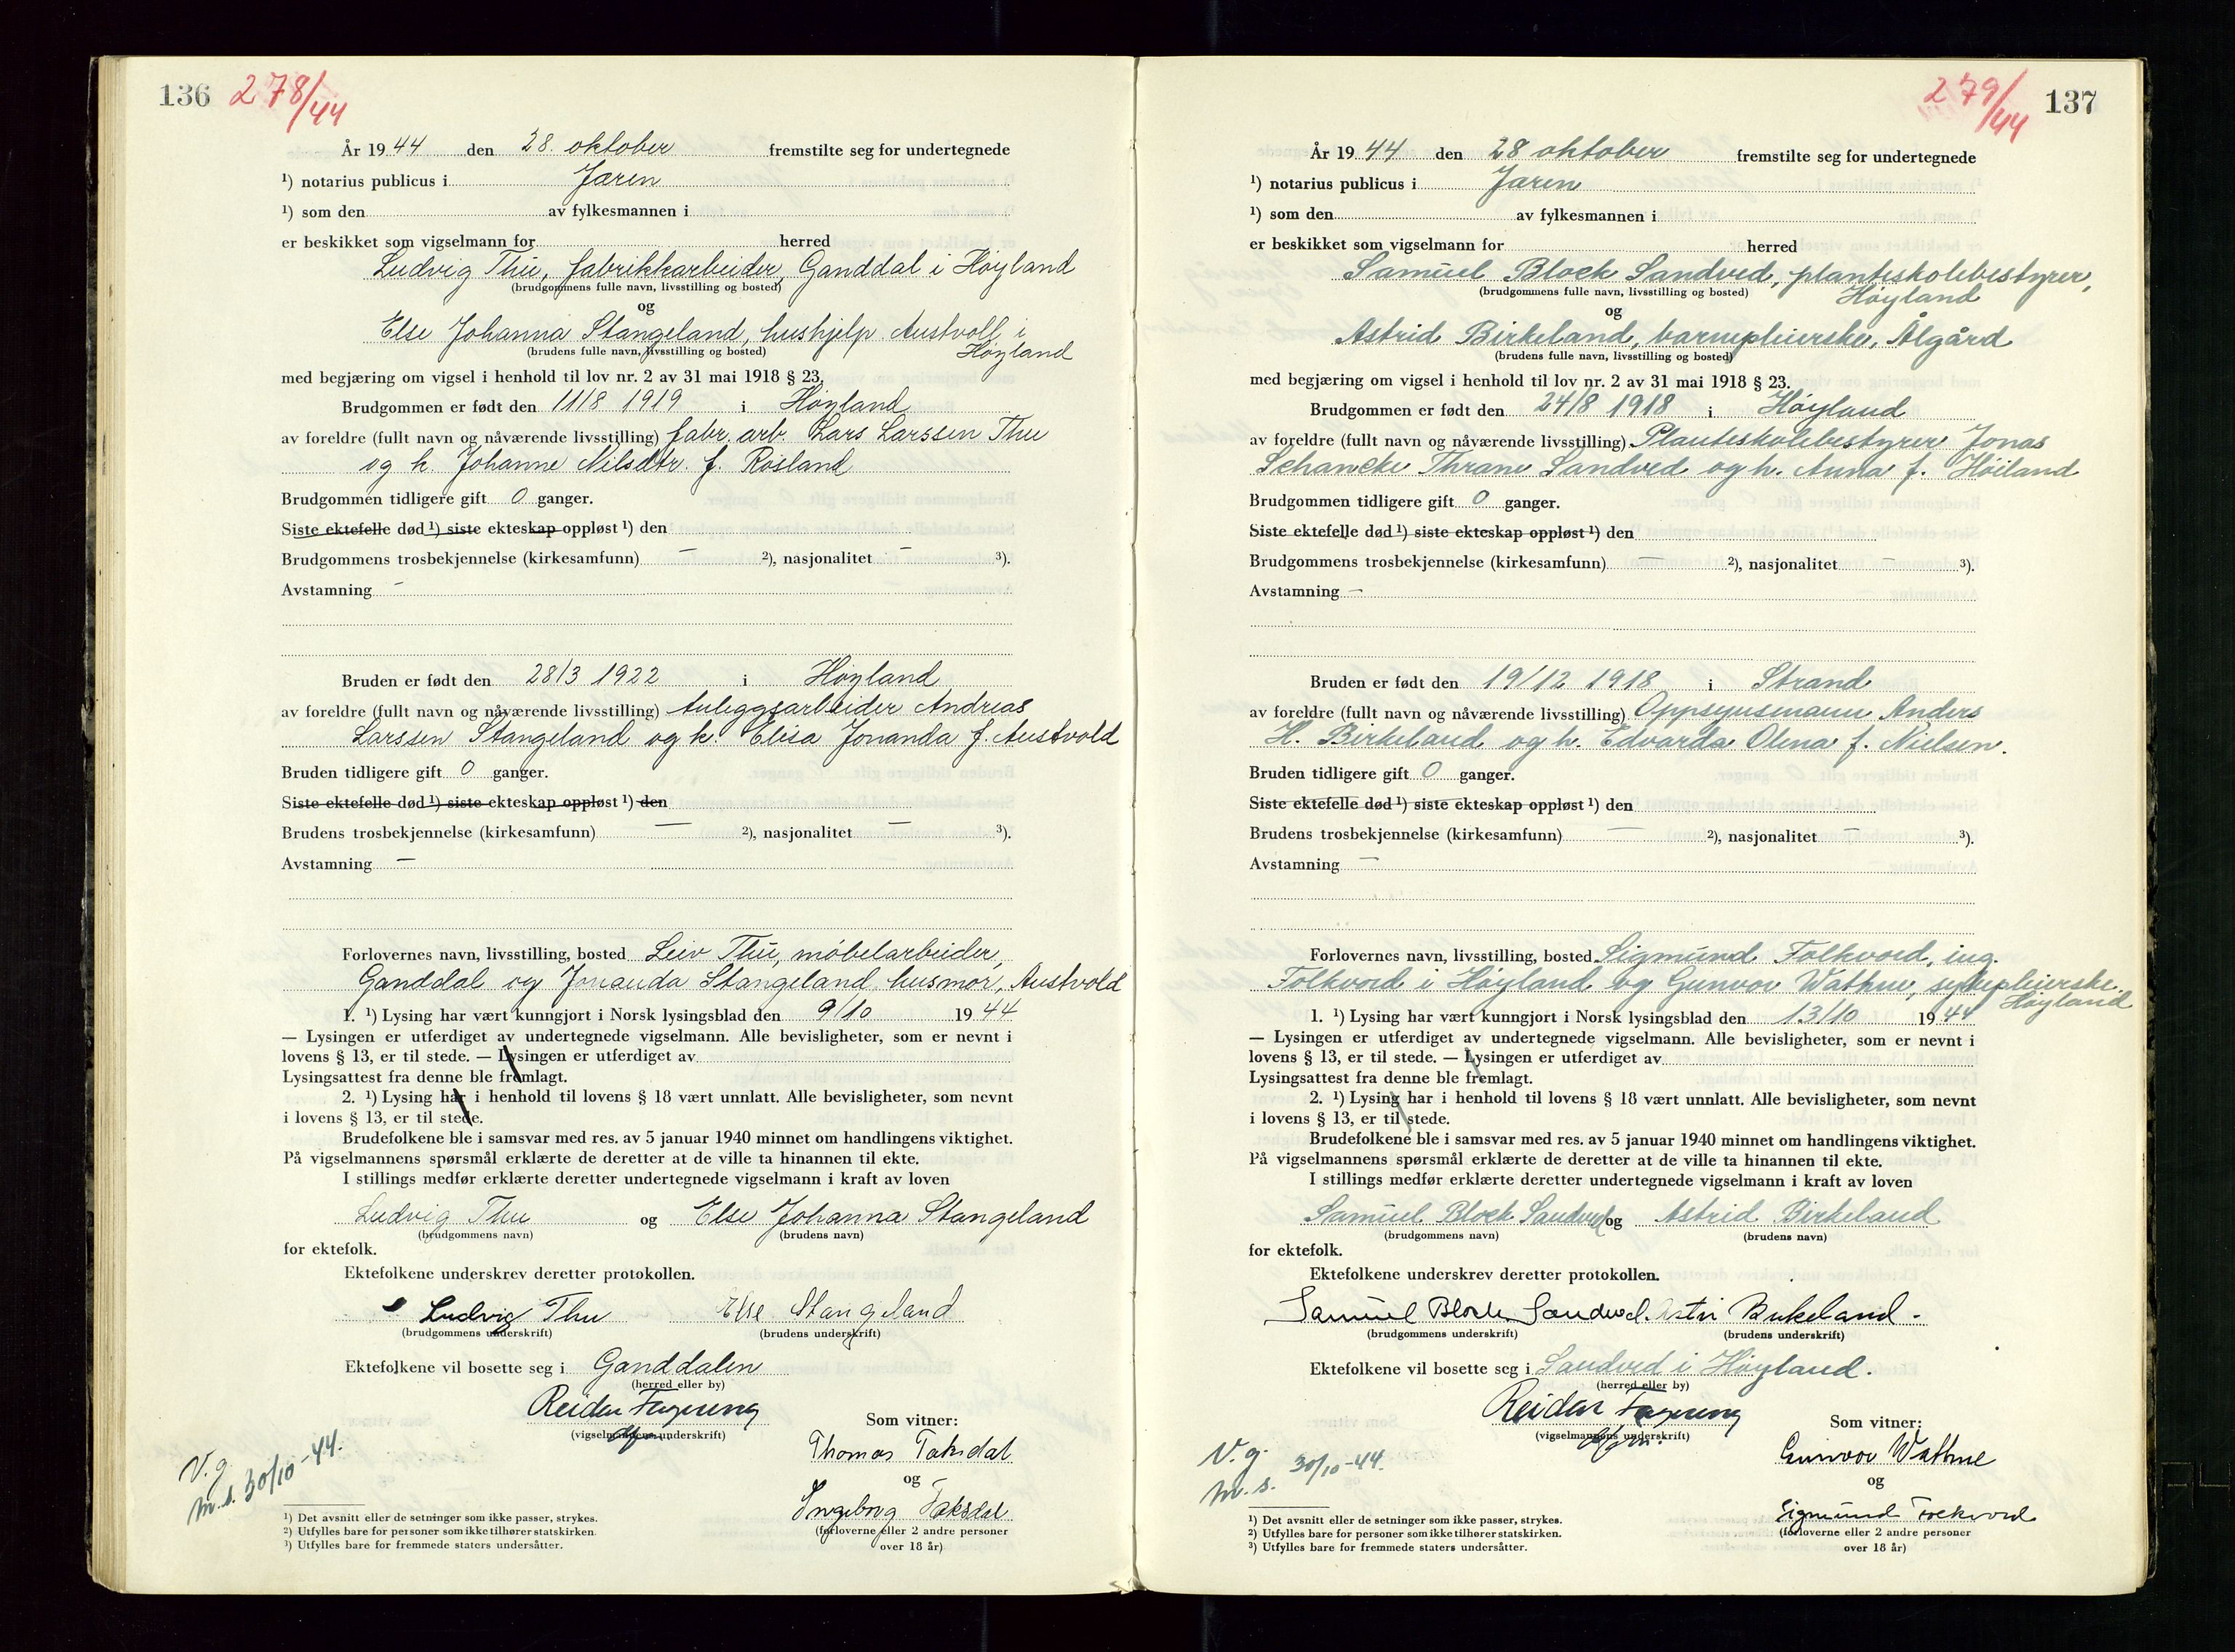 136 278/44
År 1944 den 28. oktober fremstilte seg for undertegnede
¹) notarius publicus i Jæren
¹) som den av fylkesmannen i
er beskikket som vigselmann for herred
Ludvig Thu, fabrikkarbeider, Ganddal i Høyland
(brudgommens fulle navn, livsstilling og bosted)
og
Else Johanna Stangeland, hushjelp Austvoll i
Høyland
(brudens fulle navn, livsstilling og bosted)
med begjæring om vigsel i henhold til lov nr. 2 av 31 mai 1918 § 23.
Brudgommen er født den 11/8 1919 i Høyland
av foreldre (fullt navn og nåværende livsstilling) fabr. arb. Lars Larssen Thu
og h. Johanne Nilsdtr. f. Røsland
Brudgommen tidligere gift 0 ganger.
Siste ektefelle død ¹) siste ekteskap oppløst ¹) den
Brudgommens trosbekjennelse (kirkesamfunn) — ²), nasjonalitet — ³).
Avstamning —
Bruden er født den 28/3 1922 i Høyland
av foreldre (fullt navn og nåværende livsstilling) Anleggsarbeider Andreas
Larssen Stangeland og h. Elisa Jonanda f. Austvold
Bruden tidligere gift 0 ganger.
Siste ektefelle død ¹) siste ekteskap oppløst ¹) den
Brudens trosbekjennelse (kirkesamfunn) — ²), nasjonalitet — ³).
Avstamning —
Forlovernes navn, livsstilling, bosted Leiv Thu, møbelarbeider,
Ganddal og Jonanda Stangeland husmor, Austvold
1. ¹) Lysing har vært kunngjort i Norsk lysingsblad den 9/10 1944
— Lysingen er utferdiget av undertegnede vigselmann. Alle bevisligheter, som er nevnt i
lovens § 13, er til stede. — Lysingen er utferdiget av
Lysingsattest fra denne ble fremlagt.
2. ¹) Lysing har i henhold til lovens § 18 vært unnlatt. Alle bevisligheter, som nevnt
i lovens § 13, er til stede.
Brudefolkene ble i samsvar med res. av 5 januar 1940 minnet om handlingens viktighet.
På vigselmannens spørsmål erklærte de deretter at de ville ta hinannen til ekte.
I stillings medfør erklærte deretter undertegnede vigselmann i kraft av loven
Ludvig Thu og Else Johanna Stangeland
(brudgommens navn) (brudens navn)
for ektefolk.
Ektefolkene underskrev deretter protokollen.
Ludvig Thu Else Stangeland
(brudgommens underskrift) (brudens underskrift)
Ektefolkene vil bosette seg i Ganddalen
(herred eller by)
Reidar Fagereng
(vigselmannens underskrift)
Som vitner:
Thomas Taksdal
og
Ingeborg Taksdal
(forloverne eller 2 andre personer
over 18 år)
V.g.
m.s. 30/10-44.
¹) Det avsnitt eller de setninger som ikke passer, strykes.
²) Utfylles bare for personer som ikke tilhører statskirken.
³) Utfylles bare for fremmede staters undersåtter.
279/44 137
År 1944 den 28 oktober fremstilte seg for undertegnede
¹) notarius publicus i Jæren
¹) som den av fylkesmannen i
er beskikket som vigselmann for herred
Samuel Block Sandved, planteskolebestyrer,
Høyland
(brudgommens fulle navn, livsstilling og bosted)
og
Astrid Birkeland, barnepleierske, Ålgård
(brudens fulle navn, livsstilling og bosted)
med begjæring om vigsel i henhold til lov nr. 2 av 31 mai 1918 § 23.
Brudgommen er født den 24/8 1918 i Høyland
av foreldre (fullt navn og nåværende livsstilling) Planteskolebestyrer Jonas
Schancke Thrane Sandved og h. Anna f. Høiland
Brudgommen tidligere gift 0 ganger.
Siste ektefelle død ¹) siste ekteskap oppløst ¹) den
Brudgommens trosbekjennelse (kirkesamfunn) — ²), nasjonalitet — ³).
Avstamning —
Bruden er født den 19/12 1918 i Strand
av foreldre (fullt navn og nåværende livsstilling) Oppsynsmann Anders
H. Birkeland og h. Edvarda Olena f. Nielsen.
Bruden tidligere gift 0 ganger.
Siste ektefelle død ¹) siste ekteskap oppløst ¹) den
Brudens trosbekjennelse (kirkesamfunn) — ²), nasjonalitet — ³).
Avstamning —
Forlovernes navn, livsstilling, bosted Sigmund Folkvord, ing.
Folkvord i Høyland og Gunvor Wathne, sykepleierske
Høyland
1. ¹) Lysing har vært kunngjort i Norsk lysingsblad den 13/10 1944
— Lysingen er utferdiget av undertegnede vigselmann. Alle bevisligheter, som er nevnt i
lovens § 13, er til stede. — Lysingen er utferdiget av
Lysingsattest fra denne ble fremlagt.
2. ¹) Lysing har i henhold til lovens § 18 vært unnlatt. Alle bevisligheter, som nevnt
i lovens § 13, er til stede.
Brudefolkene ble i samsvar med res. av 5 januar 1940 minnet om handlingens viktighet.
På vigselmannens spørsmål erklærte de deretter at de ville ta hinannen til ekte.
I stillings medfør erklærte deretter undertegnede vigselmann i kraft av loven
Samuel Block Sandved og Astrid Birkeland
(brudgommens navn) (brudens navn)
for ektefolk.
Ektefolkene underskrev deretter protokollen.
Samuel Block Sandved. Astri Birkeland.
(brudgommens underskrift) (brudens underskrift)
Ektefolkene vil bosette seg i Sandved i Høyland.
(herred eller by)
Reidar Fagereng
(vigselmannens underskrift)
Som vitner:
Gunvor Wathne
og
Sigmund Folkvord
(forloverne eller 2 andre personer
over 18 år)
V.g.
m.s. 30/10-44.
¹) Det avsnitt eller de setninger som ikke passer, strykes.
²) Utfylles bare for personer som ikke tilhører statskirken.
³) Utfylles bare for fremmede staters undersåtter.